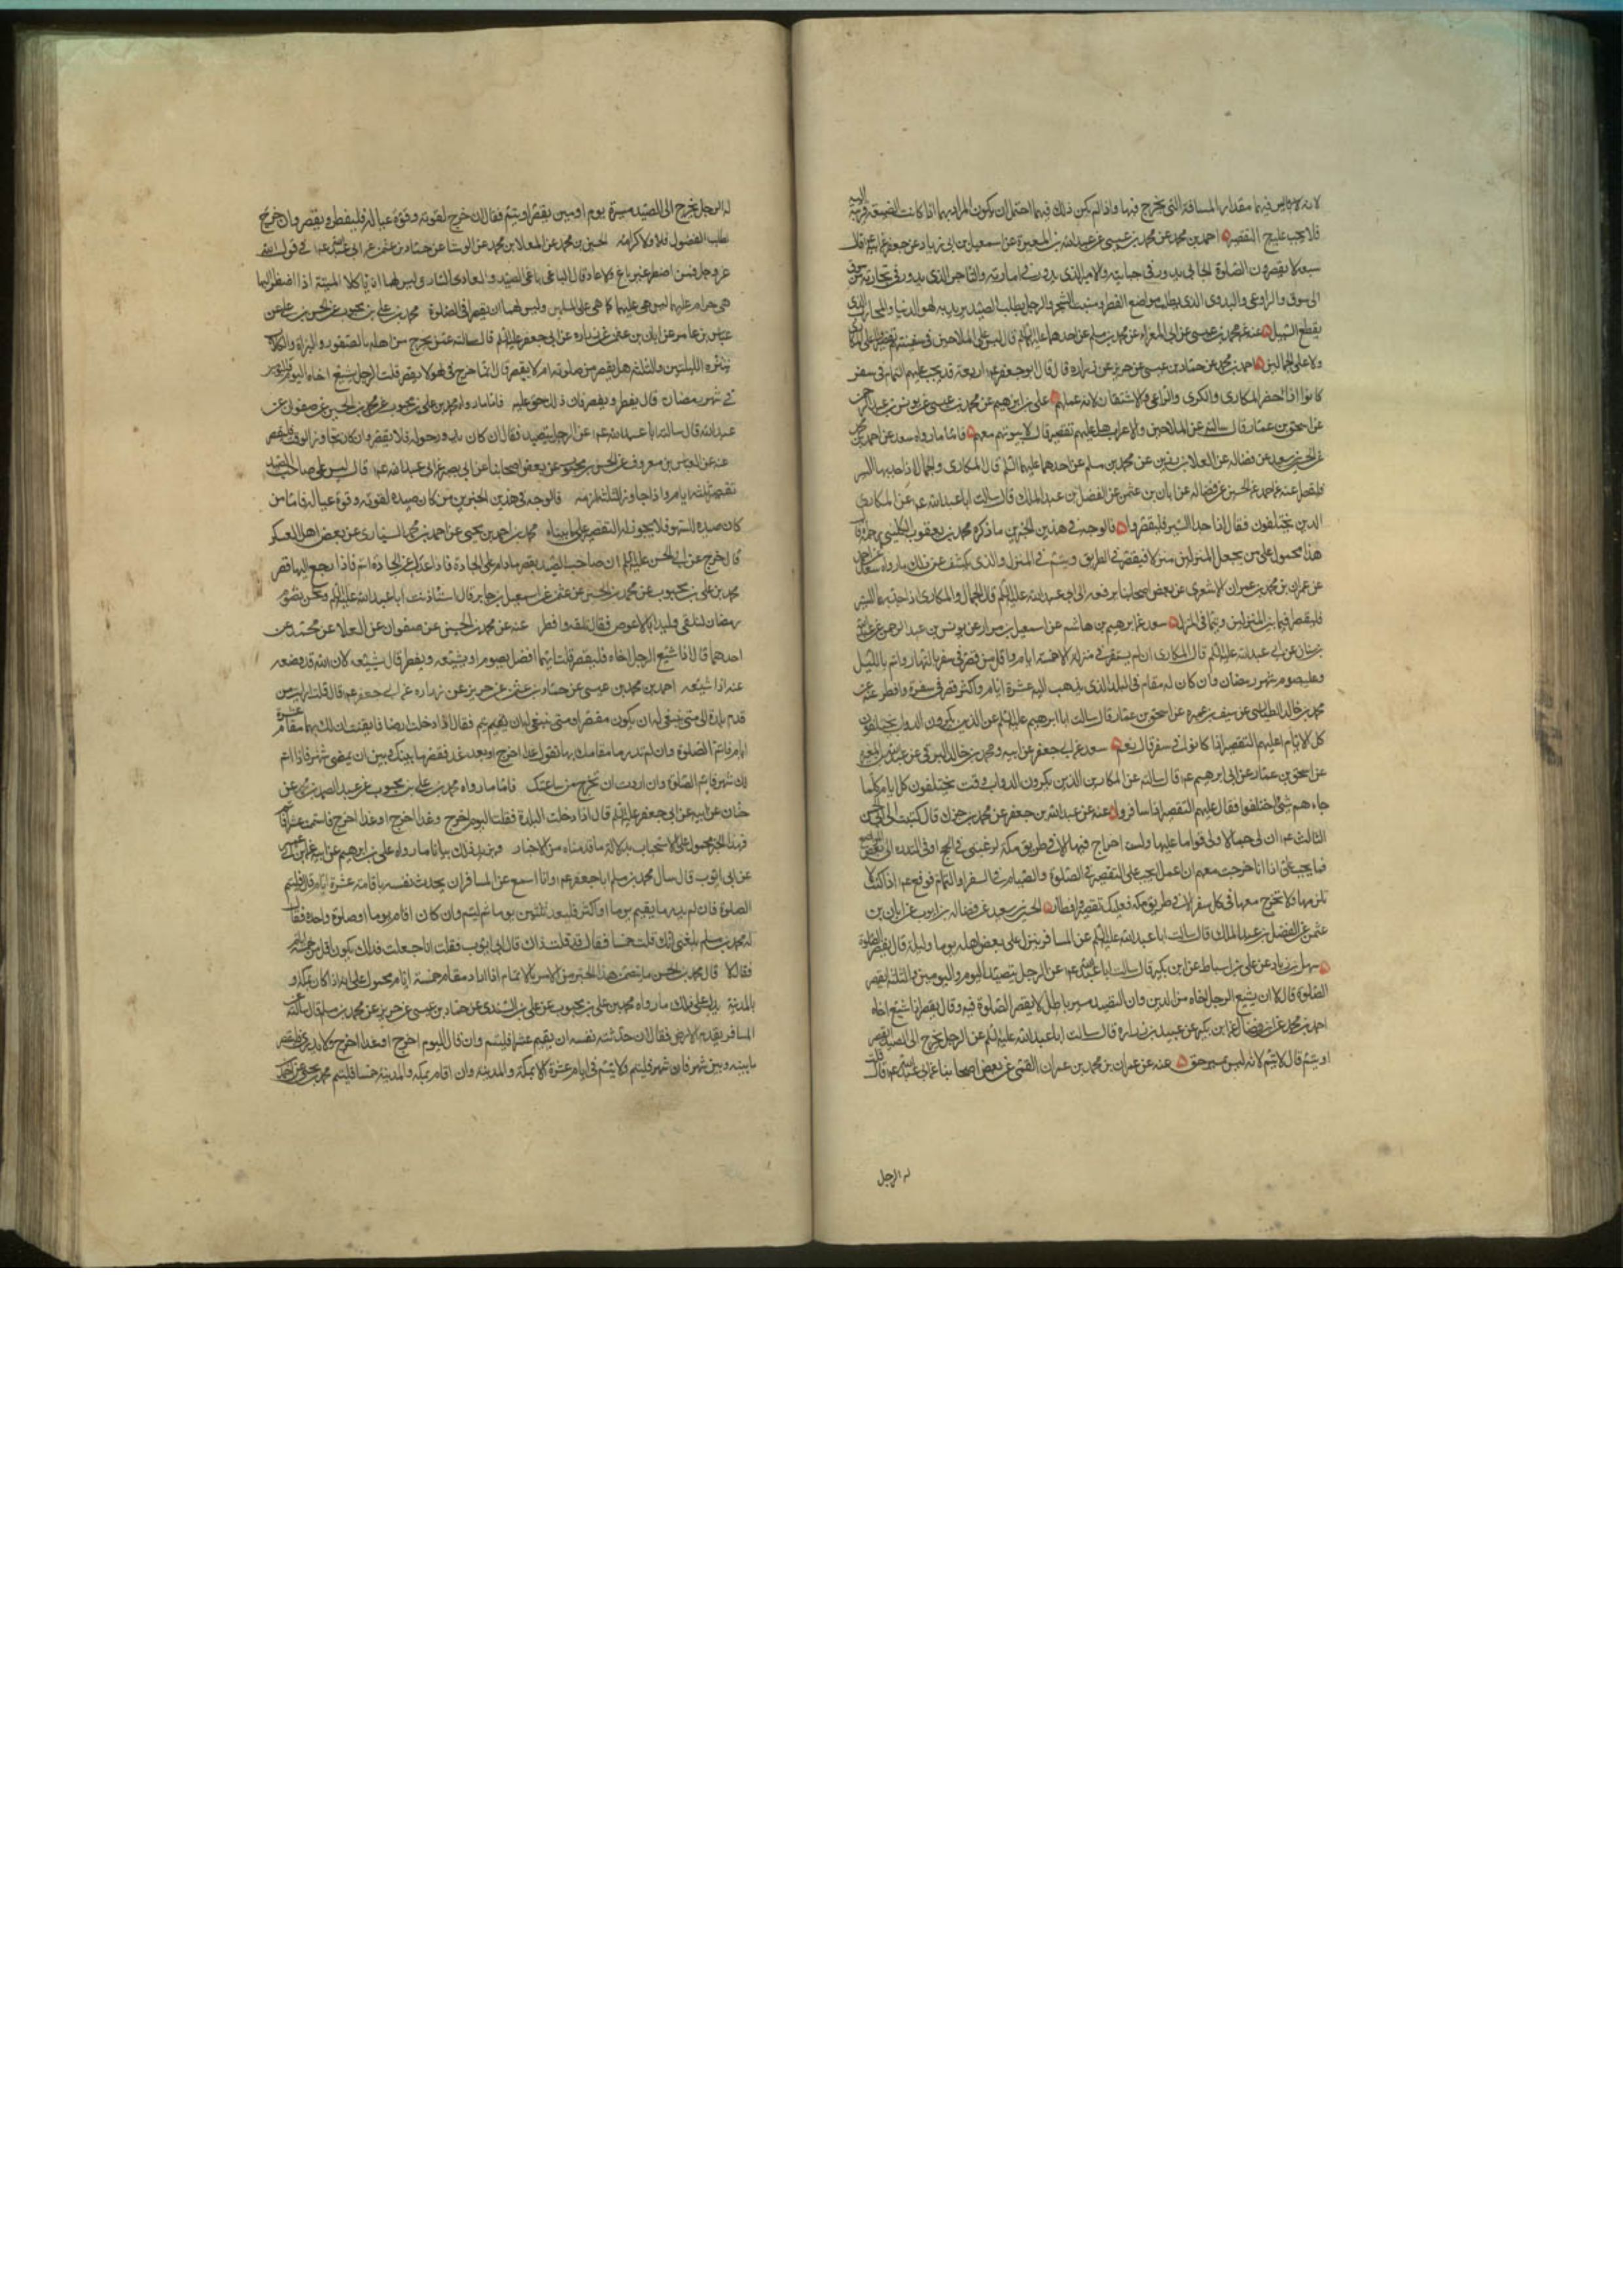 لانه لا بد فيها مقدار المسافة التي يخرج فيها واذا لم يكن ذلك فيها احتمل ان يكون المراد بهما اذا كانت الضيعة قريبة اليه
فلا يجب عليه التقصير احمد بن محمد عن محمد بن عيسى عن عبد الله بن المغيرة عن اسمعيل بن ابي زياد عن جعفر عن ابيه قال
سبعة لا يقصرون الصلوة الجابي يدور في جبايته والامير الذي يدور في امارته والتاجر الذي يدور في تجارته من سوق
الى سوق والراعي والبدوي الذي يطلب مواضع القطر ومنبت الشجر والرجل يطلب الصيد يريد به لهو الدنيا والمحارب الذي
يقطع السبيل عنه عن محمد بن عيسى عن ابي المعزاء عن محمد بن مسلم عن احدهما عليهما السلم قال ليس على الملاحين في سفينتهم تقصير ولا على المكاري
ولا على الجمالين احمد بن محمد عن حماد بن عيسى عن حريز عن زرارة قال قال ابو جعفر ع اربعة قد يجب عليهم التمام في سفر
كانوا او الحضر المكاري والكرى والراعي والاشتقان لانه عملهم علي بن ابرهيم عن محمد بن عيسى عن يونس بن عبد الرحمن
عن اسحق بن عمار قال سالته عن الملاحين والاعراب هل عليهم تقصير قال لا بيوتهم معهم فاما ما رواه سعد عن احمد بن محمد
عن الحسين بن سعيد عن فضالة عن العلا بن رزين عن محمد بن مسلم عن احدهما عليهما السلم قال المكاري والجمال اذا جد بهما السير
فليقصرا عنه عن احمد عن الحسين عن فضالة عن ابان بن عثمن عن الفضل بن عبد الملك قال سالت ابا عبد الله ع عن المكارين
الذين يختلفون فقال اذا جدوا السير فليقصروا فالوجه في هذين الخبرين ما ذكره محمد بن يعقوب الكليني رحمه الله قال
هذا محمول على من يجعل المنزلين منزلا فيقصر في الطريق ويتم في المنزل والذي يكشف عن ذلك ما رواه سعد عن احمد
عن عمران بن محمد بن عمران الاشعري عن بعض اصحابنا يرفعه الى ابي عبد الله عليه السلم قال الجمال والمكاري اذا جد بهما السير
فليقصرا فيما بين المنزلين ويتما في المنزل سعد عن ابرهيم بن هاشم عن اسمعيل بن مرار عن يونس بن عبد الرحمن عن عبد الله
بن سنان عن ابي عبد الله عليه السلم قال المكاري ان لم يستقر في منزله الا خمسة ايام واقل من قصر في سفره بالنهار واتم بالليل
وعليه صوم شهر رمضان وان كان له مقام في البلد الذي يذهب اليه عشرة ايام واكثر قصر في سفره وافطر عنه عن
محمد بن خالد الطيالسي عن سيف بن عميرة عن اسحق بن عمار قال سالت ابا ابرهيم عليه السلم عن الذين يكرون الدواب يختلفون
كل الايام اعليهم التقصير اذا كانوا في سفر قال نعم سعد عن ابي جعفر عن ابيه ومحمد بن خالد البرقي عن عبد الله بن المغيرة
عن اسحق بن عمار عن ابي ابرهيم ع قال سالته عن المكارين الذين يكرون الدواب وقلت يختلفون كل ايام كلما
جاءهم شيء اختلفوا فقال عليهم التقصير اذا سافروا عنه عن عبد الله بن جعفر عن محمد بن جزك قال كتبت الى ابي الحسن
الثالث ع ان لي جمالا ولي قواما عليها ولست اخرج فيها الا في طريق مكة لرغبتي في الحج او في الندرة الى بعض المواضع
فما يجب علي اذا انا خرجت معهم ان اعمل ايجب علي التقصير في الصلوة والصيام في السفر او التمام فوقع ع اذا كنت لا
تلزمها ولا تخرج معها في كل سفر الا في طريق مكه فعليك تقصير وافطار الحسين بن سعيد عن فضالة بن ايوب عن ابان بن
عثمن عن الفضل بن عبد الملك قال سالت ابا عبد الله عليه السلم عن المسافر ينزل على بعض اهله يوما وليلة قال يقصر الصلوة
سهل بن زياد عن علي بن اسباط عن ابن بكير قال سالت ابا عبد الله ع عن الرجل يتصيد اليوم واليومين والثلثة ايقصر
الصلوة قال لا الا ان يشيع الرجل اخاه من الدين وان التصيد مسير باطل لا يقصر الصلوة فيه وقال يقصر اذا شيع اخاه
احمد بن محمد عن ابن فضال عن ابن بكير عن عبيد بن زرارة قال سالت ابا عبد الله عليه السلم عن الرجل يخرج الى الصيد ايقصر
او يتم قال لا يتم لانه ليس بمسير حق عنه عن عمران بن محمد بن عمران القمي عن بعض اصحابنا عن ابي عبد الله ع قال قلت
له الرجل
له الرجل يخرج الى الصيد مسيرة يوم او يومين يقصر او يتم فقال ان خرج لقوته وقوة عياله فليفطر وليقصر وان خرج
لطلب الفضول فلا ولا كرامة الحسين بن محمد عن المعلا بن محمد عن الوشا عن حماد بن عثمن عن ابي عبد الله ع في قول الله
عز وجل فمن اضطر غير باغ ولا عاد قال الباغي باغي الصيد والعادي السارق ليس لهما ان ياكلا الميتة اذا اضطرا اليها
هي حرام عليهما ليس هي عليهما كما هي على المسلمين وليس لهما ان يقصرا في الصلوة محمد بن علي بن محبوب عن الحسن بن علي عن
عباس بن عامر عن ابان بن عثمن عن زرارة عن ابي جعفر عليه السلم قال سالته عمن يخرج من اهله بالصقور والبزاة والكلاب
يتنزه الليلتين والثلثة هل يقصر من صلوته ام لا يقصر قال انما خرج في لهو لا يقصر قلت الرجل يشيع اخاه اليوم واليومين
في شهر رمضان قال يفطر ويقصر فان ذلك حق عليه فاما ما رواه محمد بن علي بن محبوب عن محمد بن الحسين عن صفوان عن
عبد الله قال سالت ابا عبد الله ع عن الرجل يتصيد فقال ان كان يدور حوله فلا يقصر وان كان تجاوز الوقت فليقصر
عنه عن العباس بن معروف عن الحسن بن محبوب عن بعض اصحابنا عن ابي بصير عن ابي عبد الله ع قال ليس على صاحب الصيد
تقصير ثلثة ايام واذا جاوز الثلثة لزمه فالوجه في هذين الخبرين من كان صيده لقوته وقوة عياله فاما من
كان صيده للهو فلا يجوز له التقصير على ما بيناه محمد بن احمد بن يحيى عن احمد بن محمد السياري عن بعض اهل العسكر
قال خرج عن ابي الحسن عليه السلم ان صاحب الصيد يقصر ما دام على الجادة فاذا عدل عن الجادة اتم فاذا رجع اليها قصر
محمد بن علي بن محبوب عن محمد بن الحسين عن عثمن عن اسمعيل بن جابر قال استاذنت ابا عبد الله عليه السلم ونحن نصوم
رمضان لنلقى وليدا بالاعوص فقال تلقه وافطر عنه عن محمد بن الحسين عن صفوان عن العلا عن محمد عن
احدهما قال اذا شيع الرجل اخاه فليقصر قلت ايهما افضل يصوم او يشيعه ويفطر قال يشيعه لان الله قد وضعه
عنه اذا شيعه احمد بن محمد بن عيسى عن حماد بن عثمن عن حريز عن زرارة عن ابي جعفر ع قال قلت ارايت من
قدم بلدة الى متى ينبغي له ان يكون مقصرا ومتى ينبغي له ان يتم فقال اذا دخلت ارضا فايقنت ان لك بها مقام عشرة
ايام فاتم الصلوة وان لم تدر ما مقامك بها تقول غدا اخرج او بعد غد فقصر ما بينك وبين ان يمضي شهر فاذا تم
لك شهر فاتم الصلوة وان اردت ان تخرج من ساعتك فاما ما رواه محمد بن علي بن محبوب عن عبد الصمد بن محمد عن
حنان عن ابيه عن ابي جعفر عليه السلم قال اذا دخلت البلدة فقلت اليوم اخرج وغدا اخرج او غدا اخرج فاستتممت عشرا فاتم
فهذا الخبر محمول على الاستحباب بدلالة ما قدمناه من الاخبار ويزيد ذلك بيانا ما رواه علي بن ابرهيم عن ابيه عن ابن ابي عمير
عن ابي ايوب قال سال محمد بن مسلم ابا جعفر ع وانا اسمع عن المسافر ان يحدث نفسه باقامة عشرة ايام قال فليتم
الصلوة فان لم يدر ما يقيم يوما او اكثر فليعد ثلثين يوما ثم ليتم وان كان اقام يوما او صلوة واحدة فقال
له محمد بن مسلم بلغني انك قلت خمسا فقال قد قلت ذاك قال ابو ايوب فقلت انا جعلت فداك يكون اقل من خمسة
فقال لا قال محمد بن الحسن ما يتضمن هذا الخبر من الامر بالاتمام اذا اراد مقام خمسة ايام محمول على انه اذا كان بمكة و
بالمدينة يدل على ذلك ما رواه محمد بن علي بن محبوب عن علي بن السندي عن حماد بن عيسى عن حريز عن محمد بن مسلم قال سالته عن
المسافر يقدم الارض فقال ان حدثته نفسه ان يقيم عشرا فليتم وان قال اليوم اخرج او غدا اخرج ولا يدري فليقصر
ما بينه وبين شهر فان شهر فليتم ولا يتم في ايام عشرة الا بمكة والمدينة وان اقام بمكة والمدينة خمسا فليتم محمد بن يحيى عن احمد